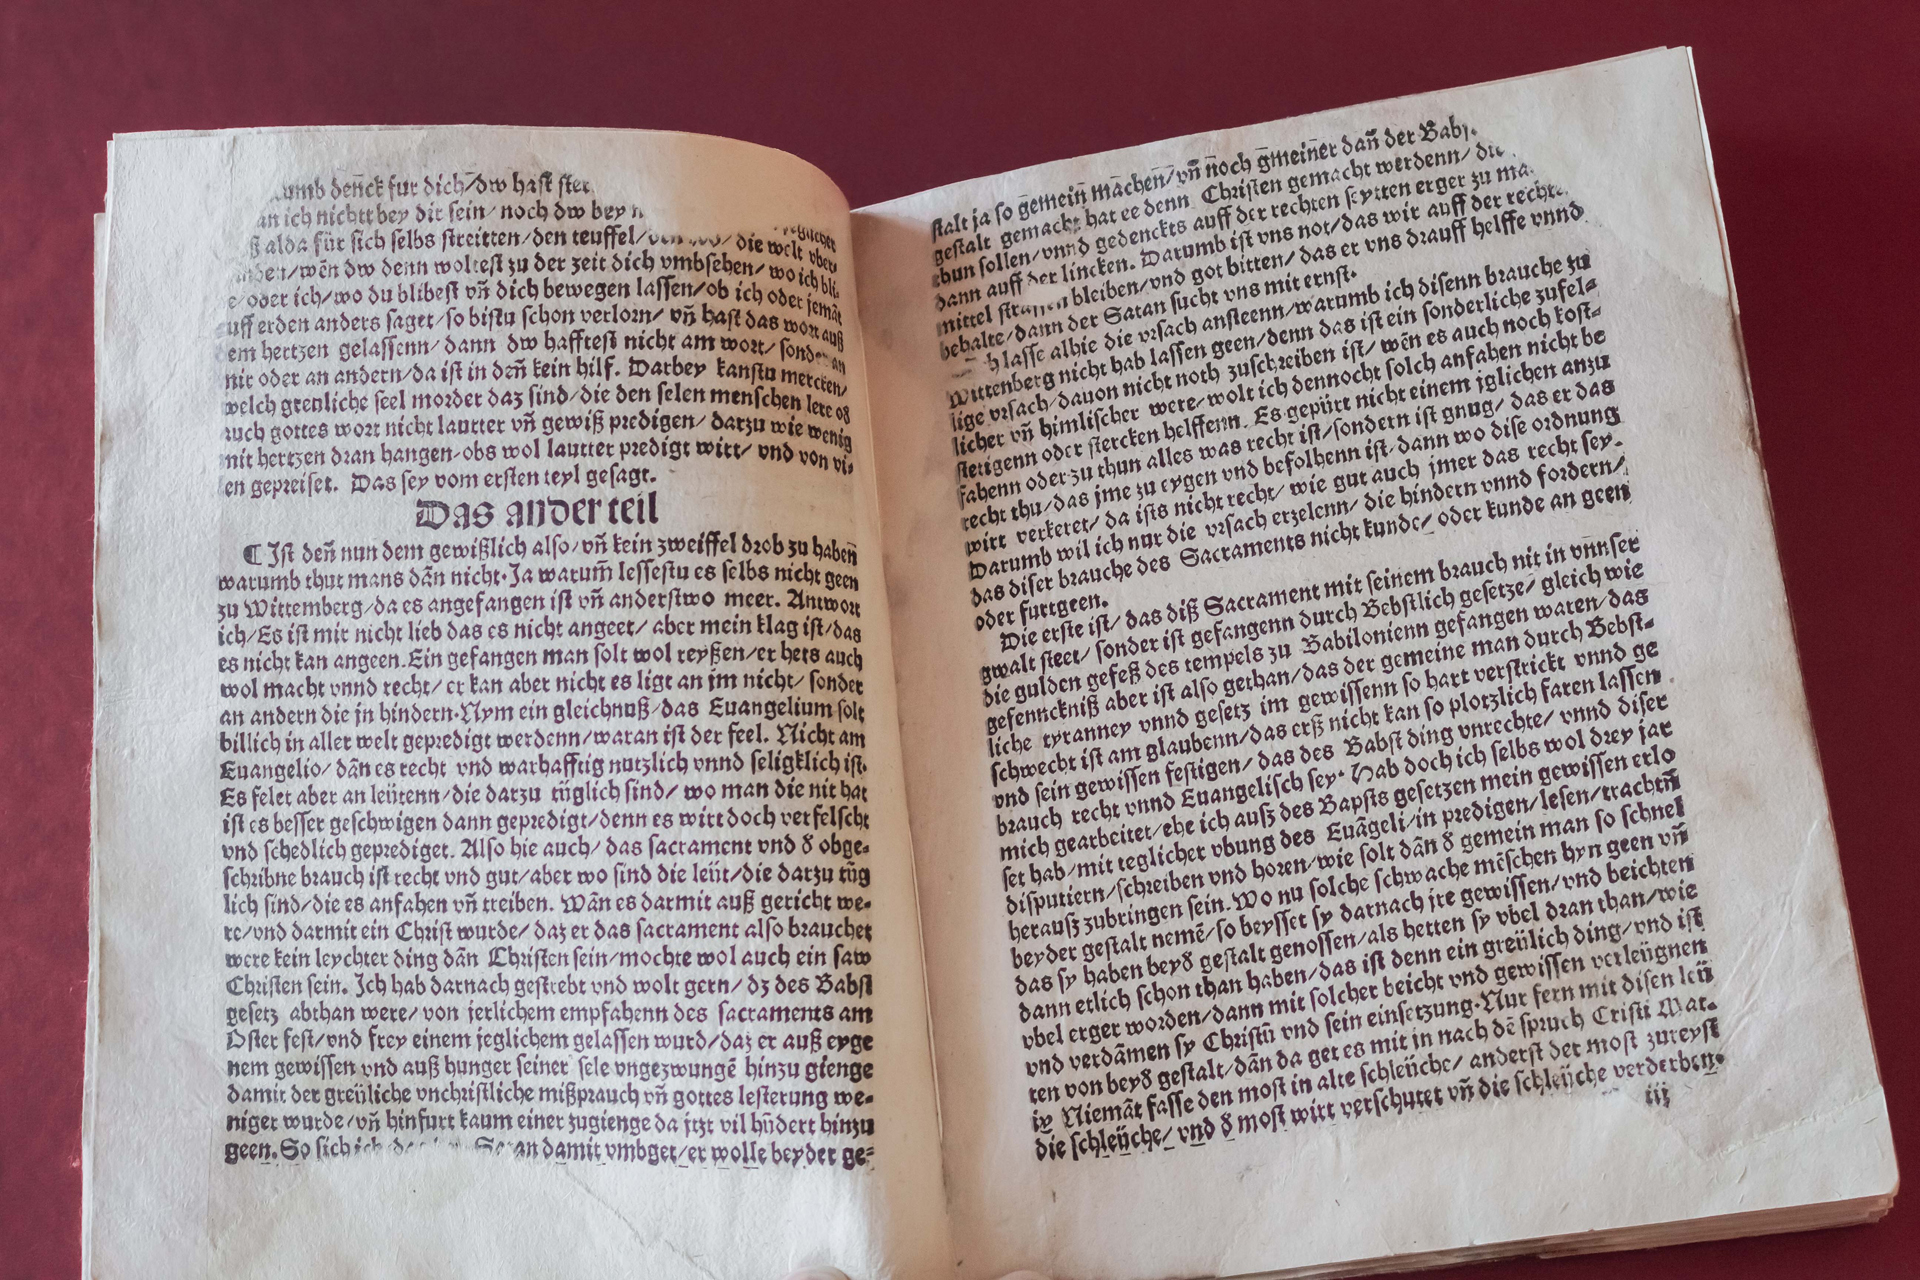 umb deñck fur dich/dw hast ster
an ich nichtt bey dir sein/noch dw bey
ß alda für sich selbs streitten/den teuffel/ die welt vber
inden/wēn dw denn woltest zu der zeit dich vmbsehen/wo ich bli
e/oder ich/wo du blibest vñ dich bewegen lassen/ob ich oder jemāt
uff erden anders saget/so bistu schon verlorn/vñ hast das wort auß
em hertzen gelassenn/dann dw hafftest nicht am wort/ an
mir oder an andern/da ist in deñ kein hilf. Darbey kanstu mercken/
welch grenliche seel morder daz sind/die den selen menschen lere oð
auch gottes wort nicht lautter vñ gewiß predigen/darzu wie wenig
mit hertzen dran hangen/obs wol lautter predigt wirt/vnd von vi⸗
len gepreiset. Das sey vom ersten teyl gesagt.
Das ander teil
¶ Ist deñ nun dem gewißlich also/vñ kein zweiffel drob zu habeñ
warumb thut mans dān nicht. Ja warum̄ lessestu es selbs nicht geen
zu Wittemberg/da es angefangen ist vñ anderstwo meer. Antwort
ich/Es ist mir nicht lieb das es nicht angeet/aber mein klag ist/das
es nicht kan angeen. Ein gefangen man solt wol reyßen/er hets auch
wol macht vnnd recht/er kan aber nicht es ligt an jm nicht/sonder
an andern die jn hindern. Nym ein gleichnuß/das Euangelium solt
billich in aller welt gepredigt werdenn/waran ist der feel. Nicht am
Euangelio/dān es recht vnd warhafftig nutzlich vnnd seligklich ist.
Es felet aber an leütenn/die darzu tüglich sind/wo man die nit hat
ist es besser geschwigen dann gepredigt/denn es wirt doch verfelscht
vnd schedlich geprediget. Also hie auch/das sacrament vnd ð obge⸗
schribne brauch ist recht vnd gut/aber wo sind die leüt/die darzu tüg
lich sind/die es anfahen vñ treiben. Wān es darmit auß gericht we⸗
re/vnd darmit ein Christ wurde/daz er das sacrament also brauchet
were kein leychter ding dān Christen sein/mochte wol auch ein saw
Christen sein. Ich hab darnach gestrebt vnd wolt gern/dz des Babst
gesetz abthan were/von jerlichem empfahenn des sacraments am
Oster fest/vnd frey einem jeglichem gelassen wurd/daz er auß eyge
nem gewissen vnd auß hunger seiner sele vngezwungē hinzu gienge
damit der greüliche vnchristliche mißprauch vñ gottes lesterung we⸗
niger wurde/vñ hinfurt kaum einer zugienge da jtzt vil hūdert hinzu
geen. So sich ich Satan damit vmbget/er wolle beyder ge⸗
stalt ja so gemein machen/vñ noch gmeiner dañ der Babst
gestalt gemacht hat ee denn Christen gemacht werdenn/die
thun sollen/vnnd gedenckts auff der rechten seytten erger zu ma
dann auff der lincken. Darumb ist vns not/das wir auff der rechte
mittel bleiben/vnd got bitten/das er vns drauff helffe vnnd
behalte/dann der Satan sucht vns mit ernst.
Ich lasse alhie die vrsach ansteenn/warumb ich disenn brauche zu
Wittenberg nicht hab lassen geen/denn das ist ein sonderliche zufel⸗
lige vrsach/dauon nicht noth zuschreiben ist/wēn es auch noch kost⸗
licher vñ himlischer were/wolt ich dennocht solch anfahen nicht be
stetigenn oder stercken helffenn. Es gepürt nicht einem jglichen anzu
fahenn oder zu thun alles was recht ist/sondern ist gnug/das er das
recht thu/das jme zu eygen vnd befolhenn ist/dann wo dise ordnung
wirt verkeret/da ists nicht recht/wie gut auch jmer das recht sey.
Darumb wil ich nur die vrsach erzelenn/die hindern vnnd fordern/
das diser brauche des Sacraments nicht kunde/oder kunde an geen
oder furtgeen.
Die erste ist/das diß Sacrament mit seinem brauch nit in vnnser
gwalt steet/sonder ist gefangenn durch Bebstlich gesetze/gleich wie
die gulden gefeß des tempels zu Babilonienn gefangen waren/das
gefennckniß aber ist also gethan/das der gemeine man durch Bebst⸗
liche tyranney vnnd gesetz im gewissenn so hart verstrickt vnnd ge
schwecht ist am glaubenn/das erß nicht kan so plotzlich faren lassen
vnd sein gewissen festigen/das des Babst ding vnrechte/vnnd diser
brauch recht vnnd Euangelisch sey. Hab doch ich selbs wol drey jar
mich gearbeitet/ehe ich auß des Bapsts gesetzen mein gewissen erlo
set hab/mit teglicher vbung des Euāgeli/in predigen/lesen/trachtñ
disputiern/schreiben vnd horen/wie solt dān ð gemein man so schnel
herausz zubringen sein. Wo nu solche schwache mēschen hyn geen vñ
beyder gestalt nemē/so beysset sy darnach jre gewissen/vnd beichten
das sy haben beyð gestalt genossen/als hetten sy vbel dran than/wie
dann etlich schon than haben/das ist denn ein greülich ding/vnd ist
vbel erger worden/dann mit solcher beicht vnd gewissen verleügnen
vnd verdāmen sy Christū vnd sein einsetzung. Nur fern mit disen leü
ten von beyð gestalt/dān da get es mit in nach dē spruch Cristi Mat⸗
ix Niemāt fasse den most in alte schleüche/anderst der most zureyst
die schleüche/vnd ð most wirt verschutet vñ die schleüche verderben.
iij